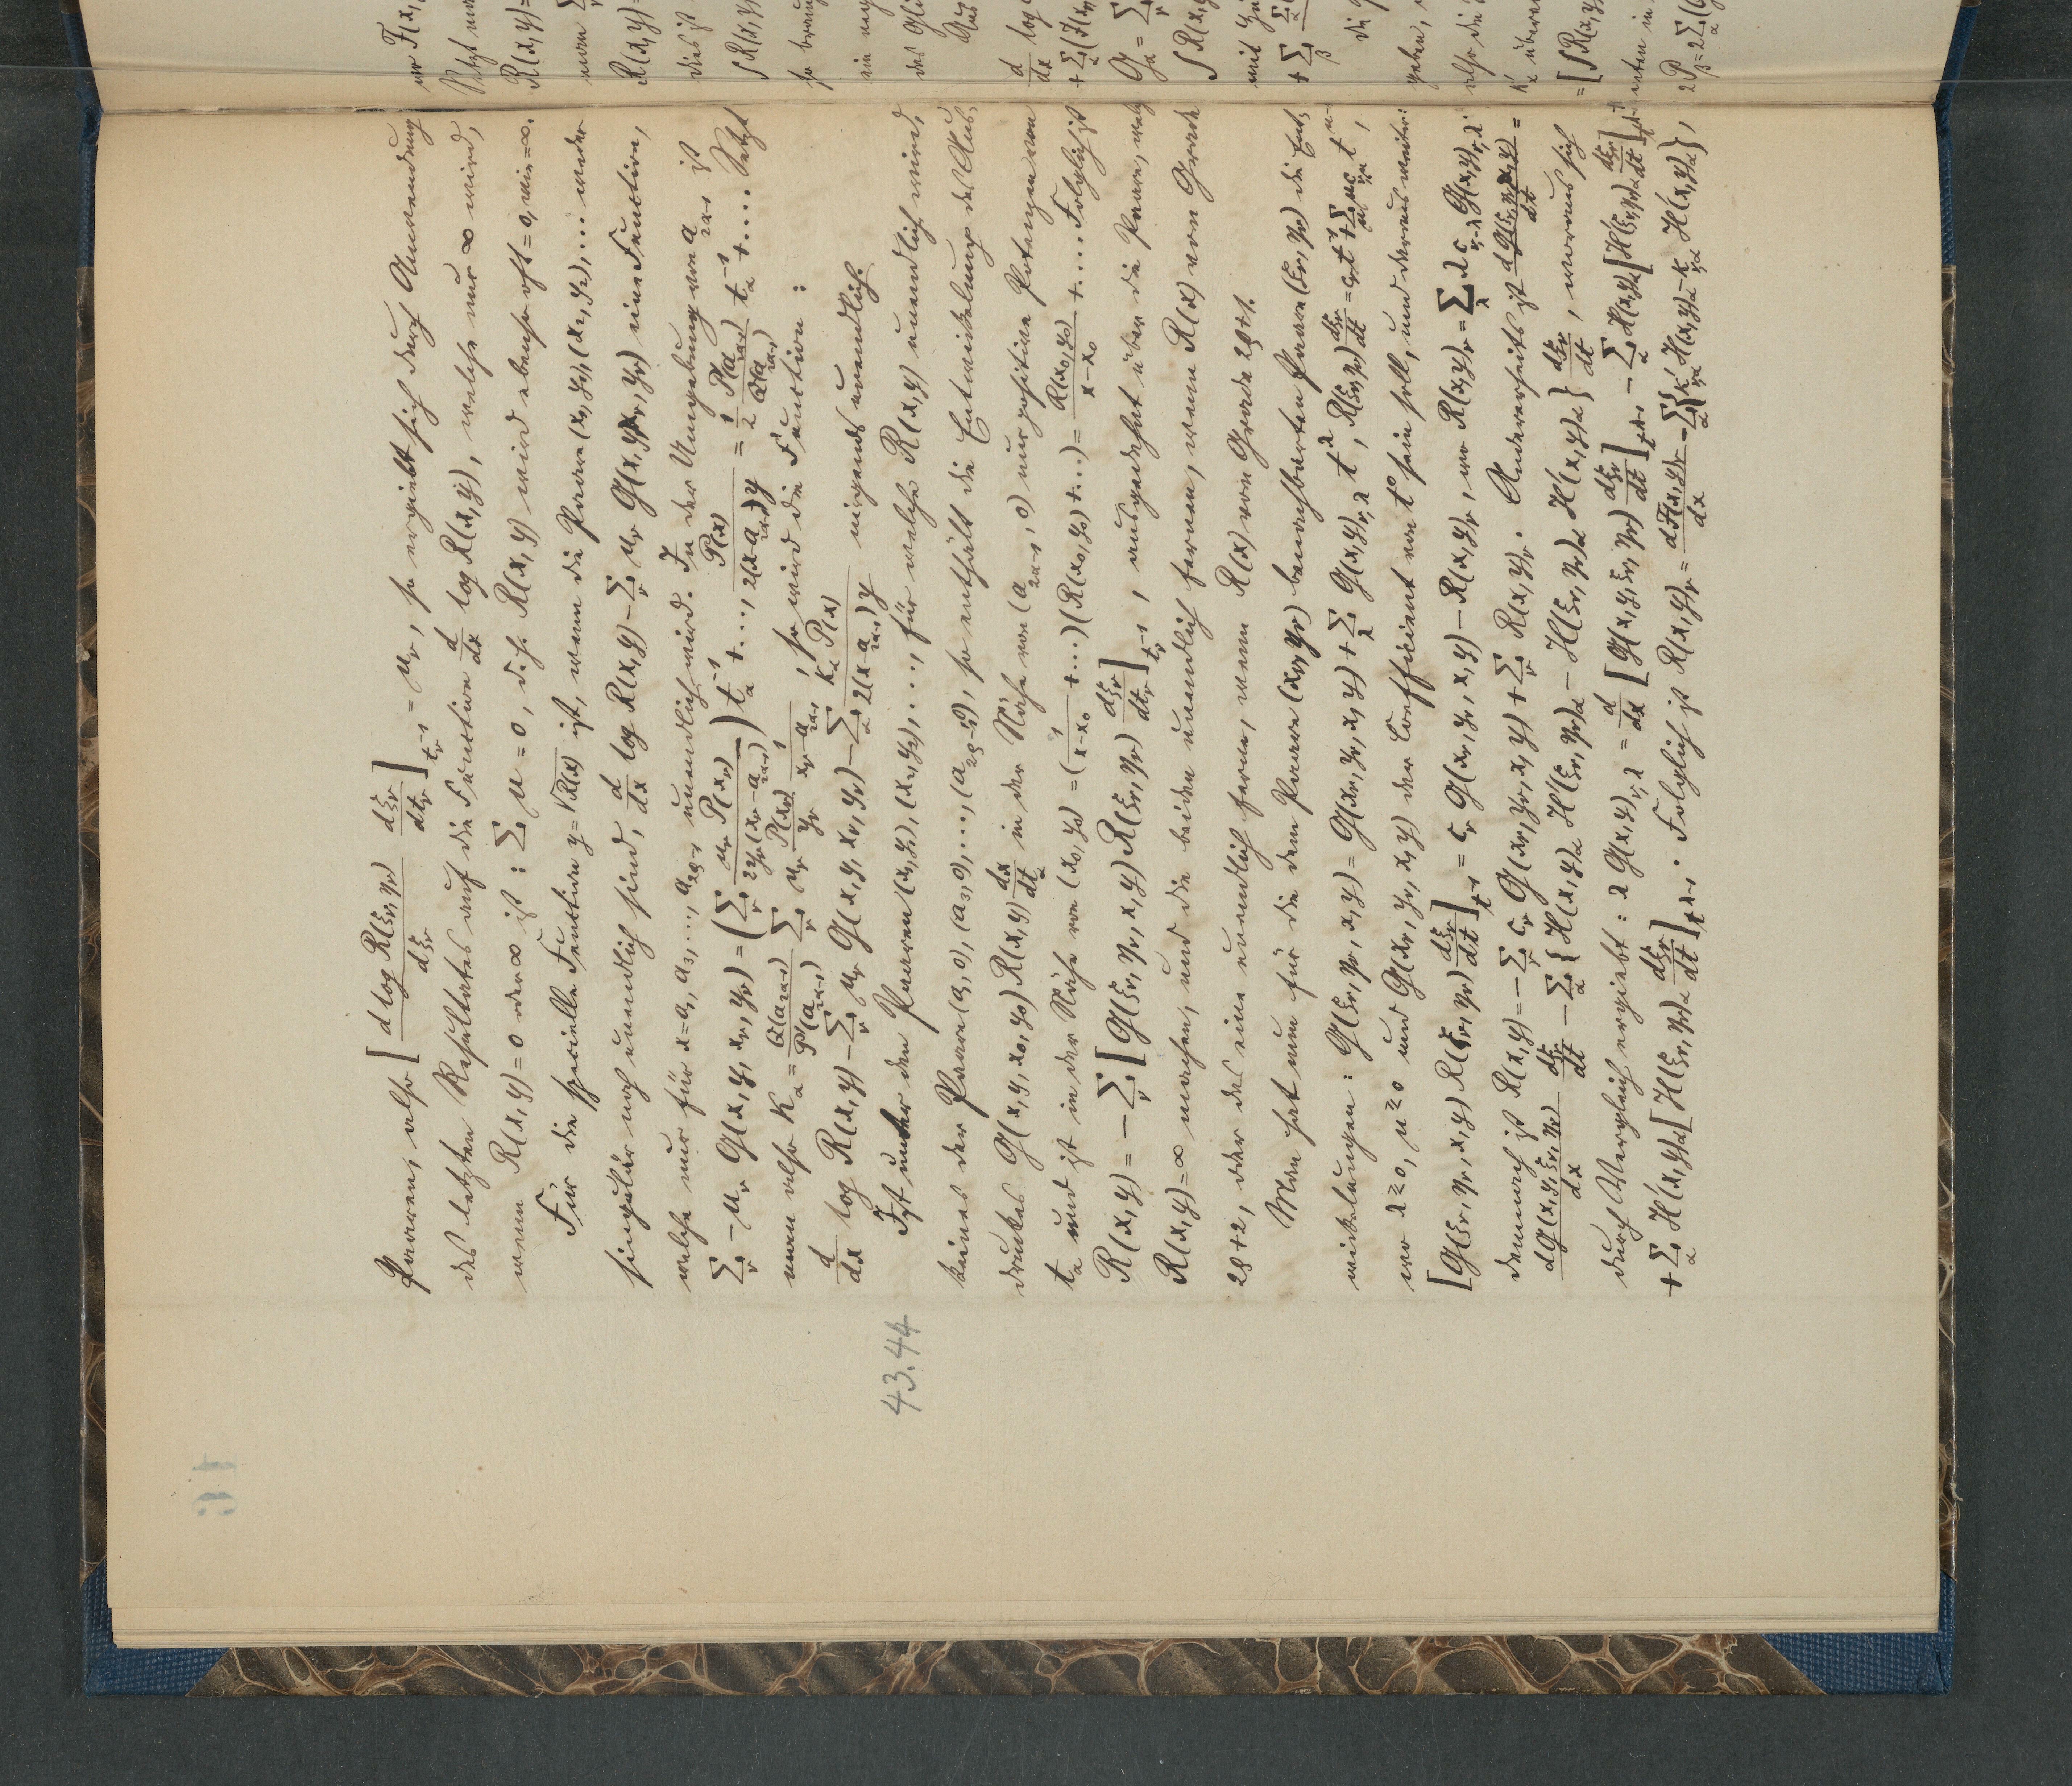 Paaren, also [d log R(ξ_ν, η_ν)/dξ_ν · dξ_ν/dt_ν]_{t_ν^{-1}} = μ_ν, so ergiebt sich durch Anwendung
des letzten Resultates auf die Function d/dx log R(x, y), welche nur ∞ wird,
wenn R(x, y) = 0 oder ∞ ist: Σ_ν μ = 0, d. h. R(x, y) wird ebenso oft = 0, wie = ∞.
Für die specielle Function y = √R(x) ist, wenn die Paare (x_1, y_1), (x_2, y_2), ... weder
singulär noch unendlich sind, d/dx log R(x, y) − Σ_ν μ_ν G(x, y, x_ν, y_ν) eine Function,
welche nur für x = a_1, a_3, ..., a_{2ρ-1} unendlich wird. In der Umgebung von a_{2α-1} ist
Σ_ν − μ_ν G(x, y, x_ν, y_ν) = (Σ_ν μ_ν P(x_ν)/2y_ν(x_ν − a_{2α-1})) t_α^{-1} + ..., P(x)/2(x − a_{2α-1})y = 1/2 P'(a_{2α-1})/Q(a_{2α-1}) t_α^{-1} + .... Setzt
man also K_α = Q(a_{2α-1})/P'(a_{2α-1}) Σ_ν μ_ν P(x_ν)/y_ν · 1/(x_ν − a_{2α-1}), so wird die Function:
d/dx log R(x, y) − Σ_ν μ_ν G(x, y, x_ν, y_ν) − Σ_α K_α P(x)/2(x − a_{2α-1})y nirgends unendlich.
Ist unter den Paaren (x_1, y_1), (x_2, y_2), ..., für welche R(x, y) unendlich wird,
keines der Paare (a_1, 0), (a_3, 0), ..., (a_{2ρ-1}, 0), so enthält die Entwickelung des Aus-
druckes G(x, y, x_0, y_0) R(x, y) dx/dt_α in der Nähe von (a_{2α-1}, 0) nur positive Potenzen von
t_α und ist in der Nähe von (x_0, y_0) = (1/(x−x_0) + ...)(R(x_0, y_0) + ...) = R(x_0, y_0)/(x−x_0) + .... Folglich ist
R(x, y) = − Σ_ν [G(ξ_ν, η_ν, x, y) R(ξ_ν, η_ν) dξ_ν/dt_ν]_{t_ν^{-1}}, ausgedehnt über die Paare, welche
R(x, y) = ∞ machen, und die beiden unendlich fernen, wenn R(x) vom Grade
2ρ+2, oder das eine unendlich ferne, wenn R(x) vom Grade 2ρ+1.
Man hat nun für die dem Paare (x_ν, y_ν) benachbarten Paare (ξ_ν, η_ν) die Ent-
wickelungen: G(ξ_ν, η_ν, x, y) = G(x_ν, y_ν, x, y) + Σ_λ G(x, y)_{ν,λ} t^λ, R(ξ_ν, η_ν) dξ_ν/dt = c_ν t^{-1} + Σ_μ μ c_{ν,μ} t^{μ-1},
wo λ ≷ 0, μ ≷ 0 und G(x_ν, y_ν, x, y) der Coefficient von t^0 sein soll, und daraus weiter:
[G(ξ_ν, η_ν, x, y) R(ξ_ν, η_ν) dξ_ν/dt]_{t^{-1}} = c_ν G(x_ν, y_ν, x, y) − R(x, y)_ν, wo R(x, y)_ν = Σ_λ λ c_{ν,-λ} G(x, y)_{ν,λ}
demnach ist R(x, y) = − Σ_ν c_ν G(x_ν, y_ν, x, y) + Σ_ν R(x, y)_ν. Andererseits ist dG(ξ_ν, η_ν, x, y)/dt =
dG(x, y, ξ_ν, η_ν)/dx dξ_ν/dt − Σ_α {H(x, y)_α H'(ξ_ν, η_ν)_α − H(ξ_ν, η_ν)_α H'(x, y)_α} dξ_ν/dt, woraus sich
durch Vergleich ergiebt: λ G(x, y)_{ν,λ} = d/dx [G(x, y, ξ_ν, η_ν) dξ_ν/dt]_{t^{λ-1}} − Σ_α H(x, y)_α [H'(ξ_ν, η_ν)_α dξ_ν/dt]_{t^{λ-1}}
+ Σ_α H'(x, y)_α [H(ξ_ν, η_ν)_α dξ_ν/dt]_{t^{λ-1}}. Folglich ist R(x, y)_ν = dF(x, y)_ν/dx − Σ_α {K'_{ν,α} H(x, y)_α − K_{ν,α} H'(x, y)_α},
43.44